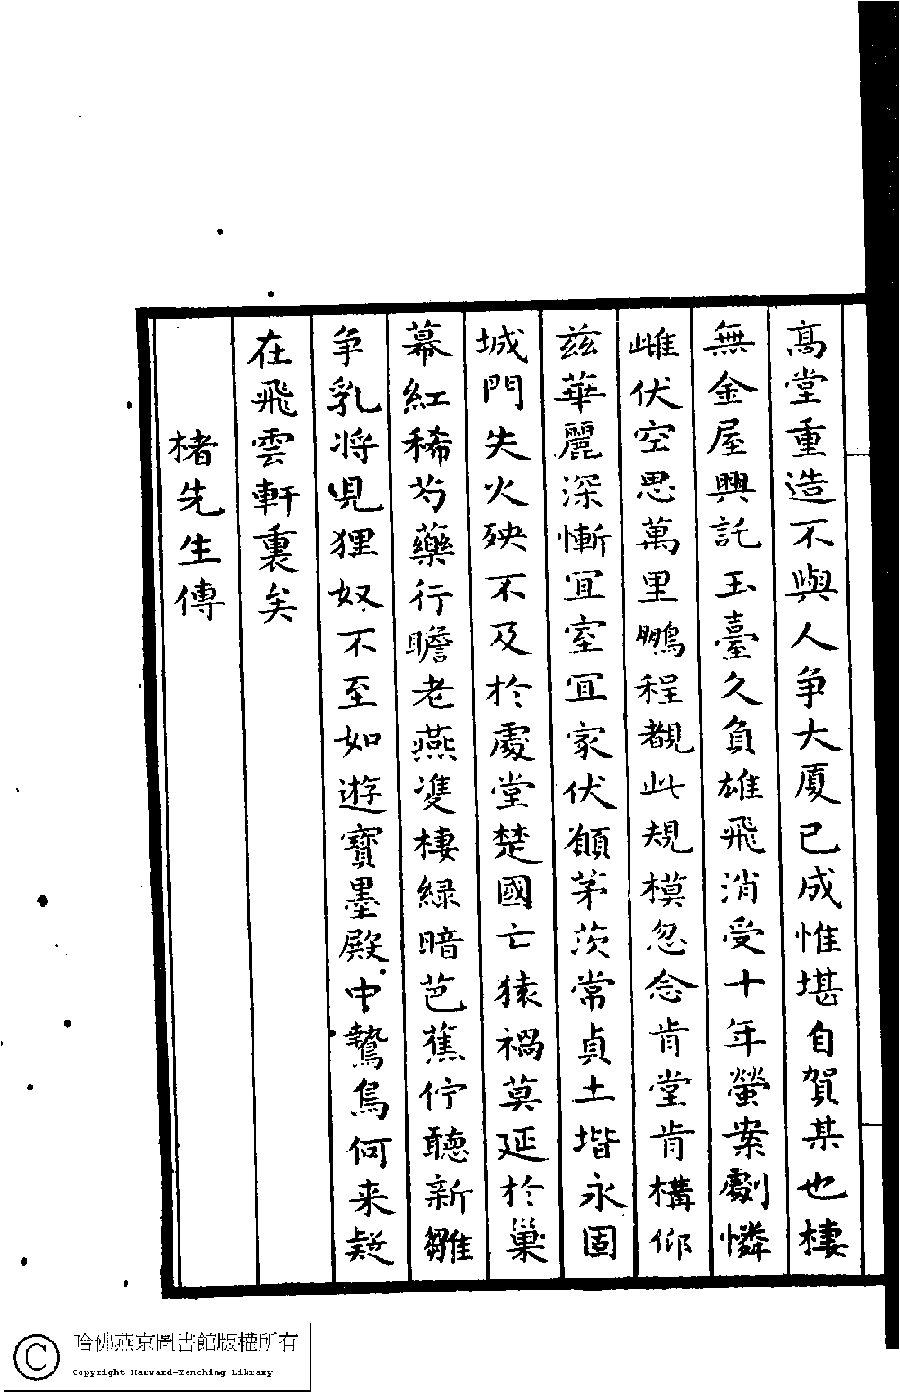 高堂重造不與人争大厦已成惟堪自賀某也棲
無金屋興託玉臺久負雄飛消受十年螢案劇憐
雌伏空思萬里鵬程覩此規模忽念肯堂肯構仰
兹華麗深慚冝室冝家伏願茅茨常貞土堦永固
城門失火殃不及於處堂楚國亡猿禍莫延於巢
幕紅稀芍藥行瞻老燕雙棲緑暗芭蕉佇聽新雛
争乳将児狸奴不至如遊寶墨殿中鷙鳥何来疑
在飛雲軒裏矣
楮先生傳
哈佛燕京圖書館版權所有
Copyright Harvard-Yenching Library